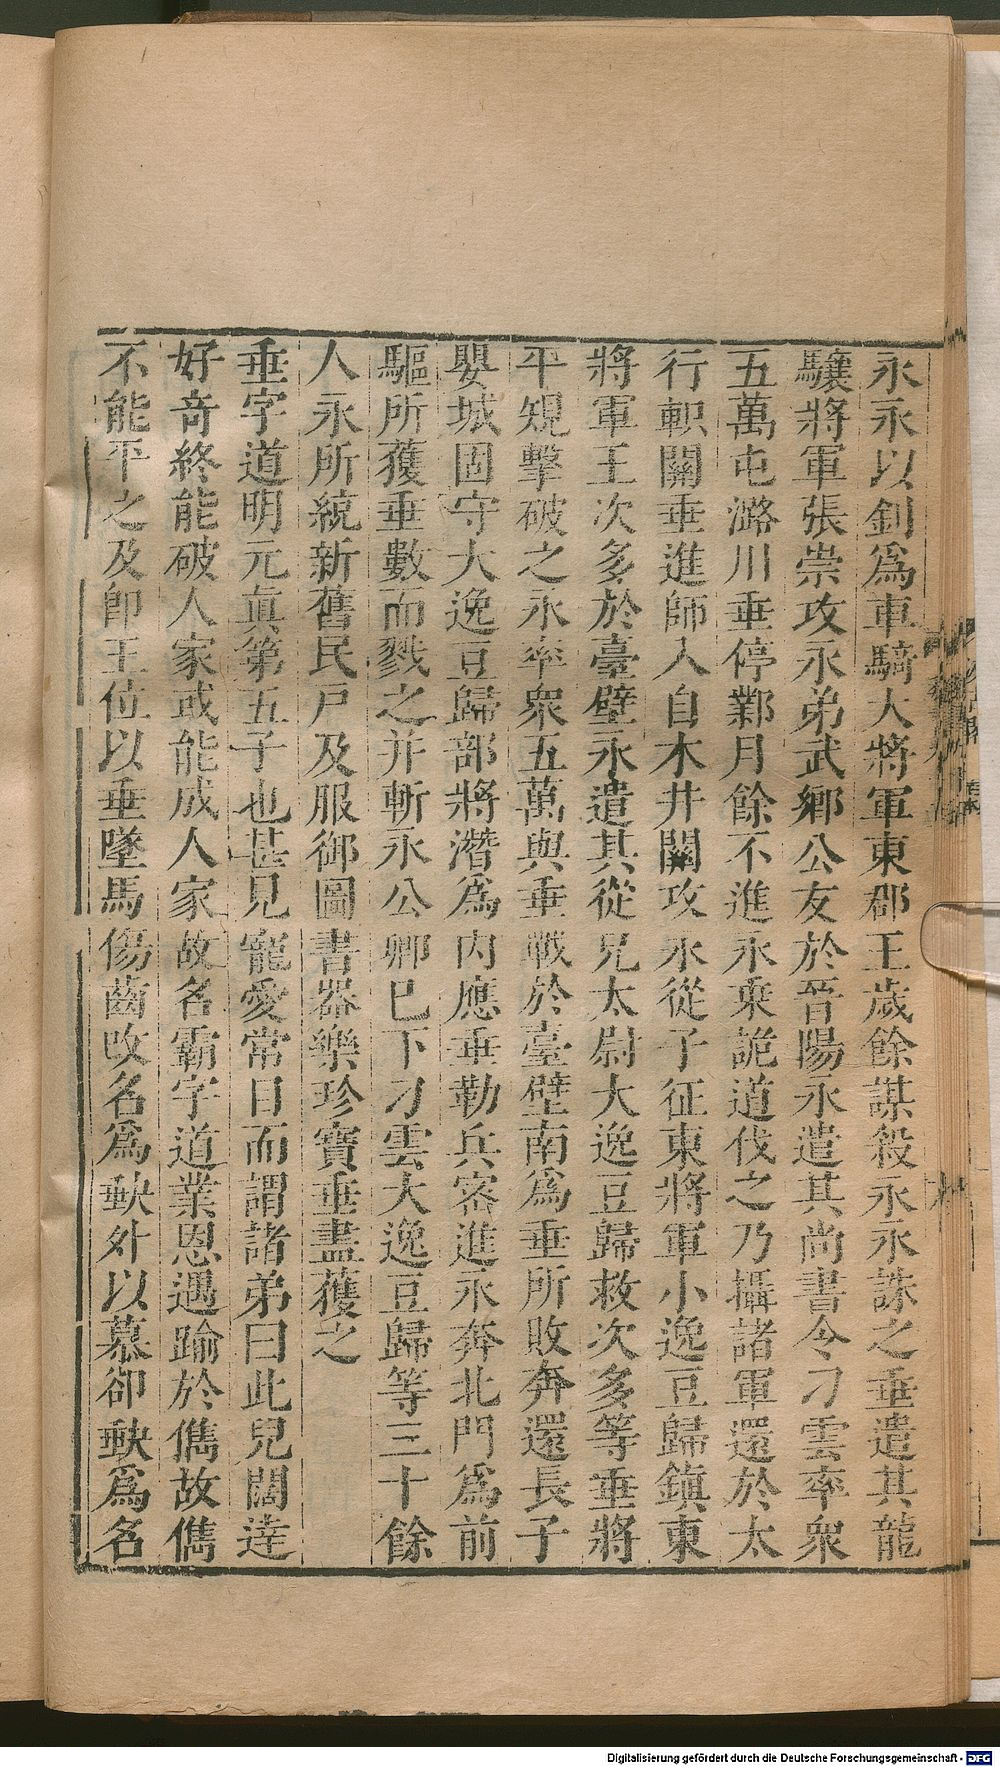 永永以釗爲車騎大將軍東郡王歲餘謀殺永永誅之垂遣其龍
驤將軍張崇攻永弟武鄉公友於晉陽永遣其尚書令刁雲率衆
五萬屯潞川垂停鄴月餘不進永乗詭道伐之乃攝諸軍還於太
行軹關垂進師入自木井關攻永從子征東將軍小逸豆歸鎮東
將軍王次多於臺壁永遣其從兄太尉大逸豆歸救次多等垂將
平規擊破之永率衆五萬與垂戰於臺壁南爲垂所敗奔還長子
嬰城固守大逸豆歸部將潛爲內應垂勒兵密進永奔北門爲前
驅所獲垂數而戮之并斬永公卿已下刁雲大逸豆歸等三十餘
人永所統新舊民戶及服御圖書器樂珍寶垂盡獲之
垂字道明元眞第五子也甚見寵愛常目而謂諸弟曰此兒闊達
好奇終能破人家或能成人家故名霸字道業恩遇踰於儁故儁
不能平之及卽王位以垂墜馬傷齒改名爲𡙇外以慕卻𡙇爲名
Digitalisierung gefördert durch die Deutsche Forschungsgemeinschaft - DFG